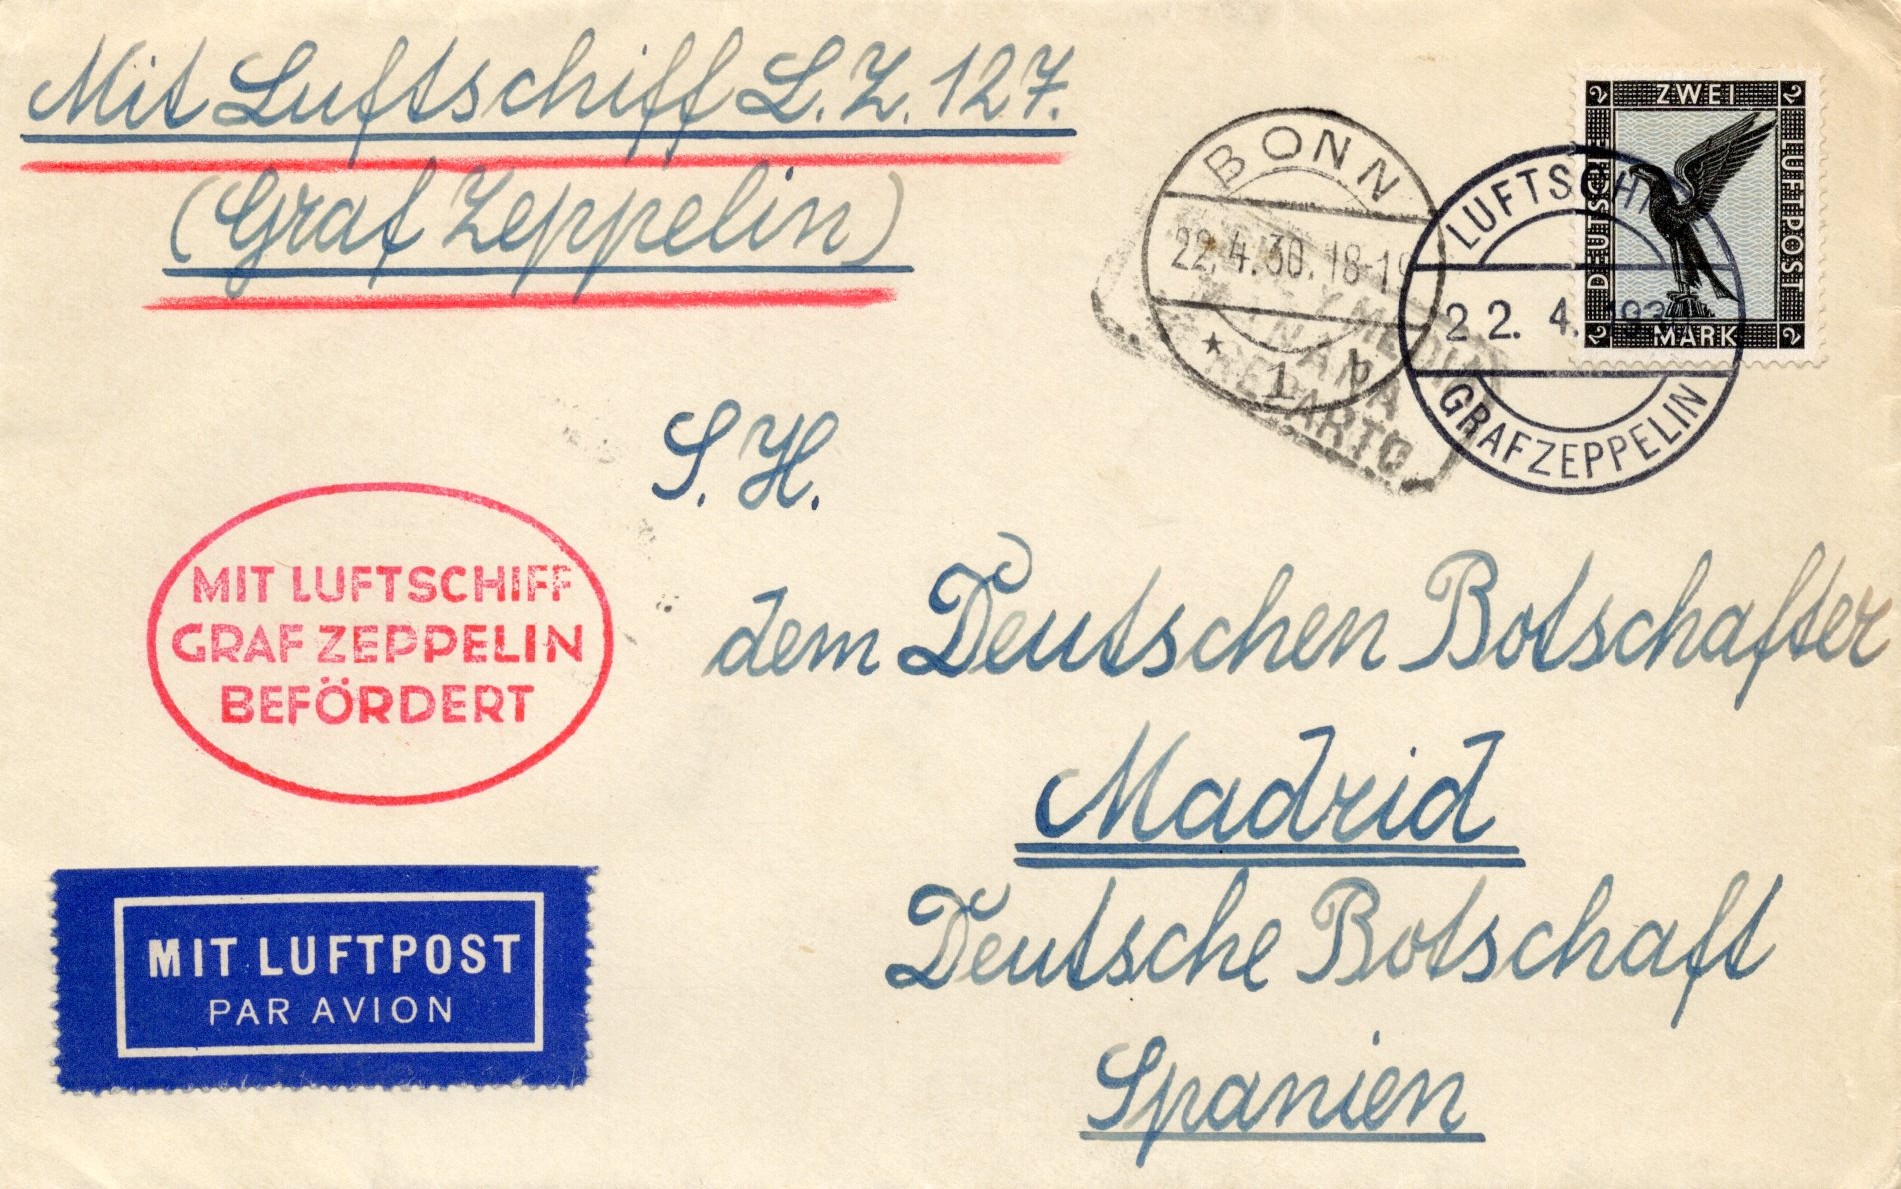 Mit Luftschiff L.Z. 127.
(Graf Zeppelin)
BONN
22.4.30. 18-19
★ 1 b
REPARTO
LUFTSCHI
22. 4. 193
GRAF ZEPPELIN
2 ZWEI 2
DEUTSCHE
LUFTPOST
2 MARK 2
S. H.
dem Deutschen Botschafter
Madrid
Deutsche Botschaft
Spanien
MIT LUFTSCHIFF
GRAF ZEPPELIN
BEFÖRDERT
MIT LUFTPOST
PAR AVION